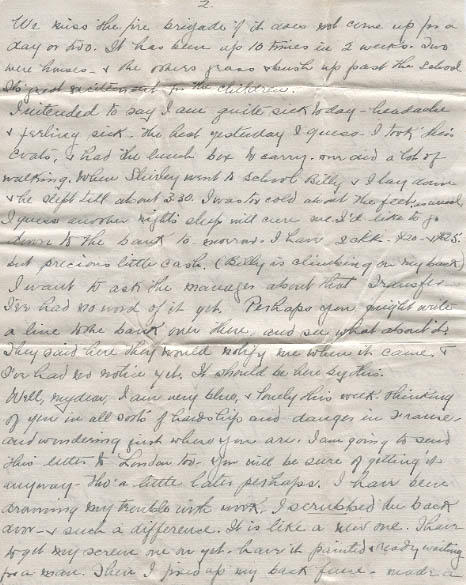 2
We miss the fire brigade if it does not come up for a
day or two. It has been up 10 times in 2 weeks. Two
were houses - & the others grass & bush up past the school
Its great excitement for the children.
I intended to say I am quite sick today - headache
& feeling sick - the heat yesterday I guess. I took his
coats, & had the lunch box to carry - and a lot of
walking. When Shirley went to school Billy & I lay down
& he slept till about 3.30. I was too cold about the feet,
I guess another night's sleep will cure me. I'd like to go
down to the bank to-morrow. I have 2 $20 - &
but precious little cash. (Billy is climbing on my back)
I want to ask the manager about that Transfer
I've had no word of it yet. Perhaps you might write
a line to the bank over there, and see what about it.
They said here they would notify me when it came. &
I've had no notice yet. It should be here by this.
Well, my dear, I am very blue, & lonely this week thinking
of you in all sorts of hardship and danger in France
and wondering just where you are. I am going to send
this letter to London too. You will be sure of getting it
anyway - tho' a little later perhaps. I have been
drowning my trouble with work. I scrubbed the back
door - & such a difference. It is like a new one. I have
to get my screen one on yet - have it painted & ready waiting
for a man. Then I fixed up my back fence - made a